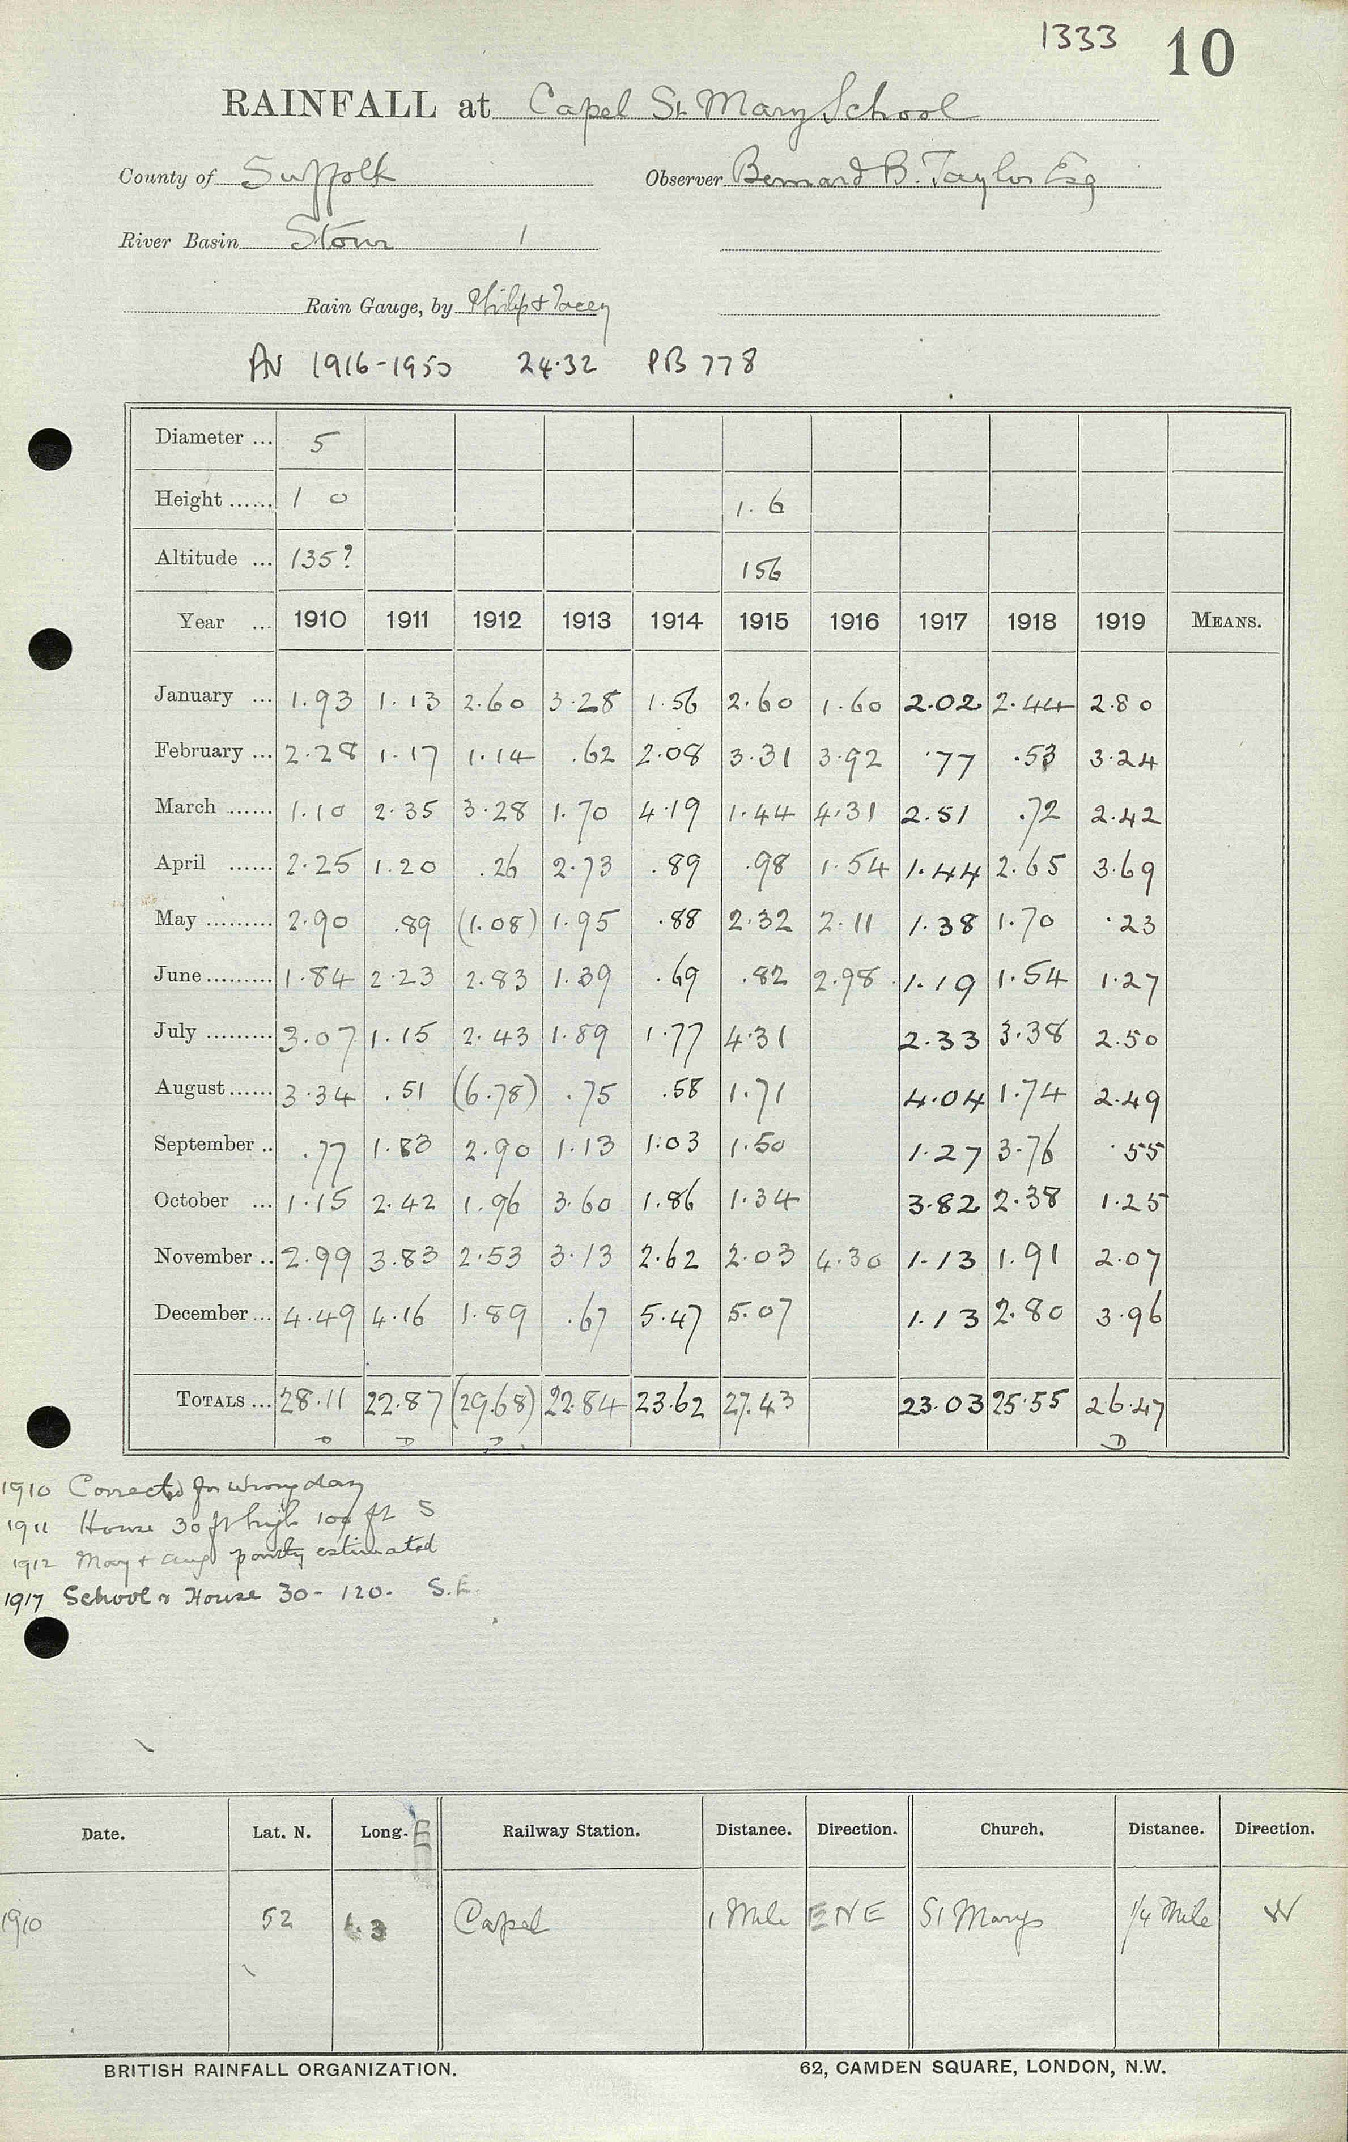 1333 10
RAINFALL at Capel St Mary School
County of Suffolk Observer Bernard B. Taylor Esq
River Basin Stour 1
Rain Gauge, by Philip & Tacey
Av 1916-1950 24.32 PB 778
Diameter ... 5
Height ...... 1 0 1.6
Altitude ... 135? 156
Year ... 1910 1911 1912 1913 1914 1915 1916 1917 1918 1919 MEANS.
January ... 1.93 1.13 2.60 3.28 1.56 2.60 1.60 2.02 2.44 2.80
February ... 2.28 1.17 1.14 .62 2.08 3.31 3.92 .77 .53 3.24
March ...... 1.10 2.35 3.28 1.70 4.19 1.44 4.31 2.51 .72 2.42
April ...... 2.25 1.20 .26 2.73 .89 .98 1.54 1.44 2.65 3.69
May ......... 2.90 .89 (1.08) 1.95 .88 2.32 2.11 1.38 1.70 .23
June ......... 1.84 2.23 2.83 1.39 .69 .82 2.98 1.19 1.54 1.27
July ......... 3.07 1.15 2.43 1.89 1.77 4.31 2.33 3.38 2.50
August ...... 3.34 .51 (6.78) .75 .58 1.71 4.04 1.74 2.49
September .. .77 1.83 2.90 1.13 1.03 1.50 1.27 3.76 .55
October ... 1.15 2.42 1.96 3.60 1.86 1.34 3.82 2.38 1.25
November .. 2.99 3.83 2.53 3.13 2.62 2.03 4.30 1.13 1.91 2.07
December ... 4.49 4.16 1.89 .67 5.47 5.07 1.13 2.80 3.96
TOTALS ... 28.11 22.87 (29.68) 22.84 23.62 27.43 23.03 25.55 26.47
D D D D
1910 Corrected for wrong day
1911 House 30 ft high 100 ft S
1912 May & Aug partly estimated
1917 School & House 30 - 120. S.E.
Date. Lat. N. Long. E Railway Station. Distance. Direction. Church. Distance. Direction.
1910 52 1.3 Capel 1 Mile ENE St Marys 1/4 Mile W
BRITISH RAINFALL ORGANIZATION. 62, CAMDEN SQUARE, LONDON, N.W.